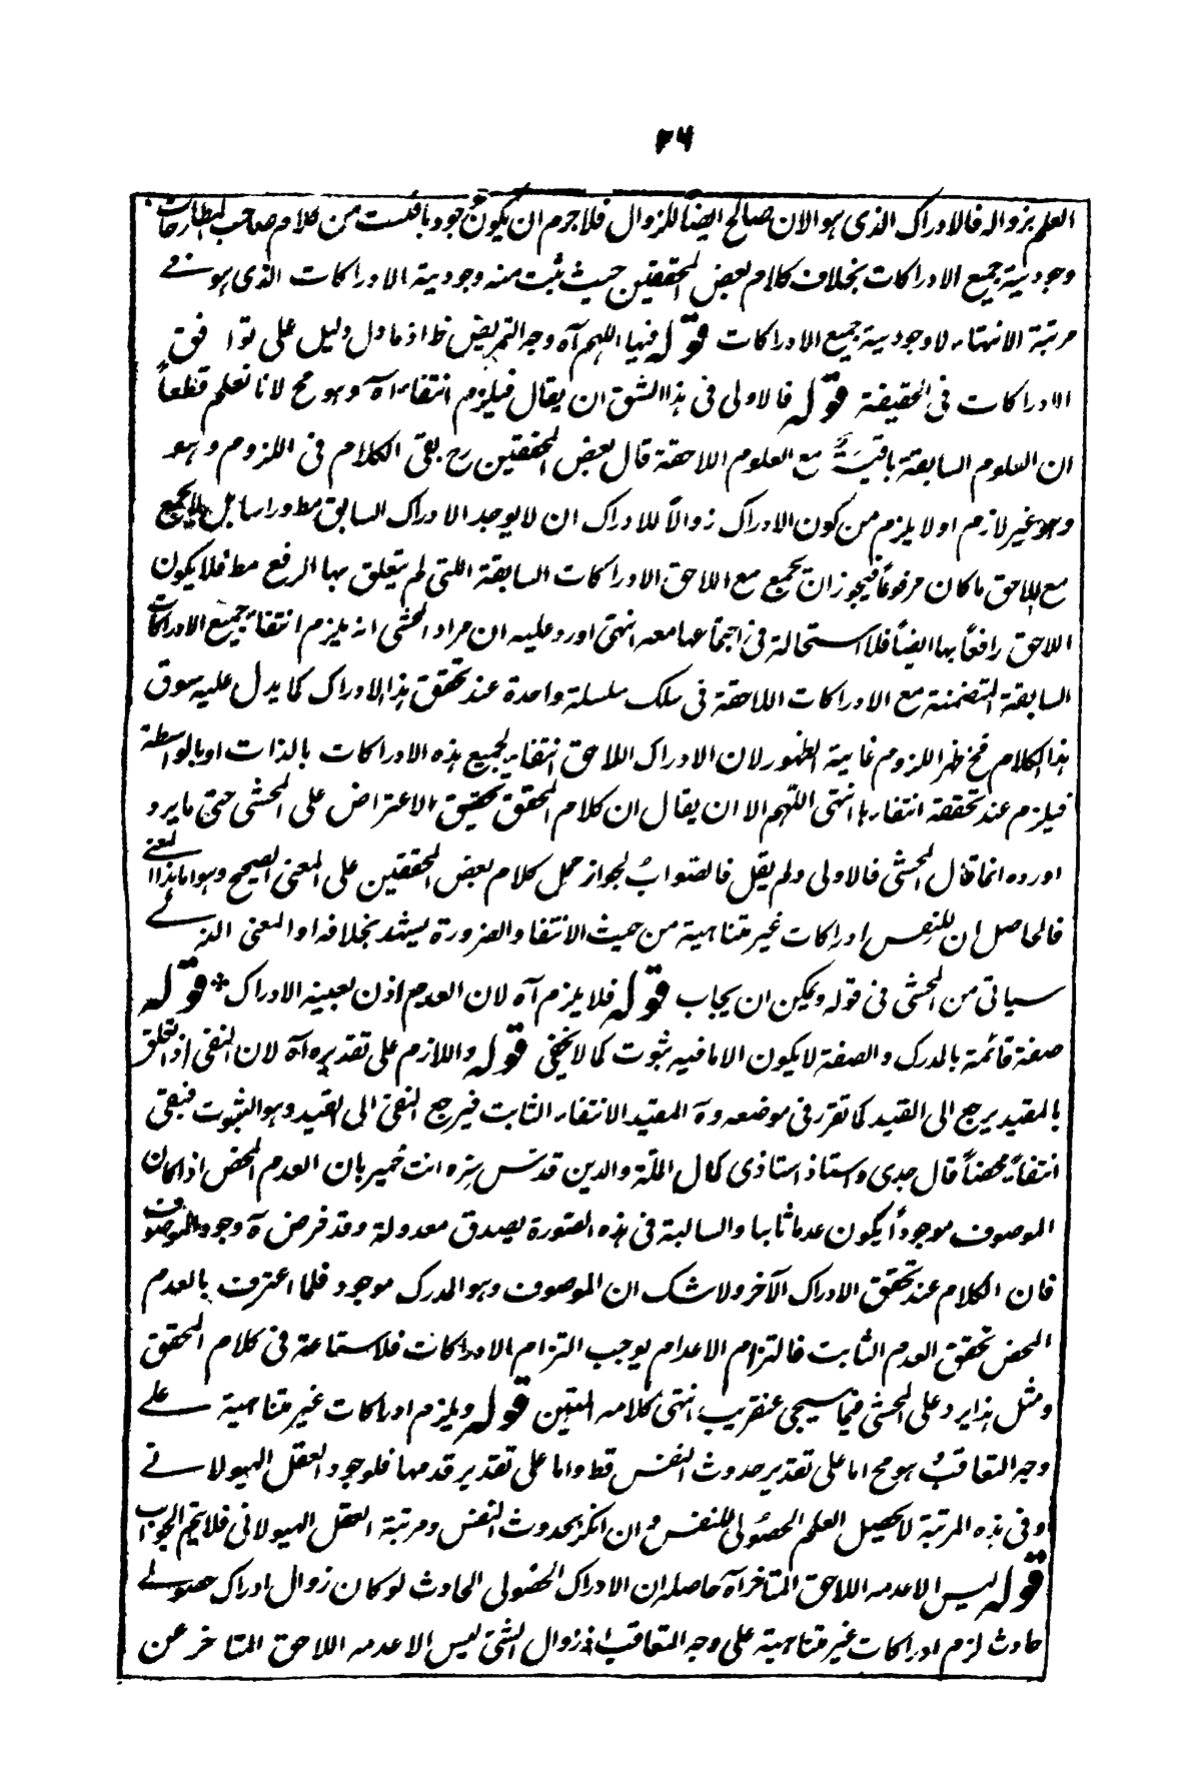 ٣٦
العلم بزواله فالادراك الذى هو الان صالح ايضا للزوال فلاجرم ان يكون وجوديا فثبت من كلام صاحب المطارحات
وجودية جميع الادراكات بخلاف كلام بعض المحققين حيث ثبت منه وجودية الادراكات الذى هو فى
مرتبة الانتهاء لا وجودية جميع الادراكات قوله فيها اللهم آه وجه التمريض ظ اذ ما دل دليل على توافق
الادراكات فى الحقيقة قوله فالاولى فى هذا الشق ان يقال فيلزم انتفاء آه وهو مح لانا نعلم قطعاً
ان العلوم السابقة باقية مع العلوم اللاحقة قال بعض المحققين رح بقى الكلام فى اللزوم وهو
وهو غير لازم اولا يلزم من كون الادراك زوالاً للادراك ان لا يوجد الادراك السابق مط وراسا بل لا يجمع
مع اللاحق ما كان مرفوعاً فيجوز ان يجمع مع اللاحق الادراكات السابقة اللتى لم يتعلق بها الرفع مط فلا يكون
اللاحق رافعاً بها ايضاً فلا استحالة فى اجتماعها معه انتهى اورد عليه ان مراد المحشى انه يلزم انتفاء جميع الادراكات
السابقة المتضمنة مع الادراكات اللاحقة فى سلك سلسلة واحدة عند تحقق هذا الادراك كما يدل عليه سوق
هذا الكلام فح ظهر اللزوم غاية الظهور لان الادراك اللاحق انتفاء لجميع هذه الادراكات بالذات او بالواسطة
فيلزم عند تحققه انتفاءها انتهى اللّهم الا ان يقال ان كلام المحقق تحقيق لا اعتراض على المحشى حتى ما يرد
اورده انما قال المحشى فالاولى ولم يقل فالصواب لجواز حمل كلام بعض المحققين على المعنى الصحيح وهو اما هذا المعنى
فالحاصل ان للنفس ادراكات غير متناهية من حيث الانتفاء والضرورة يشهد بخلافه او المعنى الذى
سياتى من المحشى فى قوله ويمكن ان يجاب قوله فلا يلزم آه لان العدم اذن بعينه الادراك * قوله
صفة قائمة بالمدرك والصفة لا يكون الا ما فيه ثبوت كما لا يخفى قوله واللازم على تقديره آه لان النفى اذا تعلق
بالمقيد يرجع الى القيد كما تقرر فى موضعه وآه المقيد الانتفاء الثابت فيرجع النفى الى القيد وهو الثبوت فبقى
انتفاءً محضاً قال جدى واستاذ استاذى كمال الملّة والدين قدس سره انت خبير بان العدم المحض اذا كان
الموصوف موجوداً يكون عدما ثابتا والسالبة فى هذه الصورة يصدق معدولة وقد فرض آه وجود الموصوف
فان الكلام عند تحقق الادراك الآخر ولا شك ان الموصوف وهو المدرك موجود فلما اعترفت بالعدم
المحض تحقق العدم الثابت فالتزام الاعدام يوجب التزام الادراكات فلا شناعة فى كلام المحقق
ومثل هذا يرد على المحشى فيما سيجى عنقريب انتهى كلامه المتين قوله ويلزم ادراكات غير متناهية على
وجه التعاقب هو مح اما على تقدير حدوث النفس قط واما على تقدير قدمها فلوجود العقل الهيولانى
وفى هذه المرتبة لا يحصل العلم الحصولى للنفس وان انكر بحدوث النفس ومرتبة العقل الهيولانى فلا يتم الجواب
قوله ليس الا عدمه اللاحق المتاخر آه حاصله ان الادراك الحصولى الحادث لو كان زوال ادراك حصولى
حادث لزم ادراكات غير متناهية على وجه التعاقب اذ زوال الشئ ليس الا عدمه اللاحق المتاخر عن